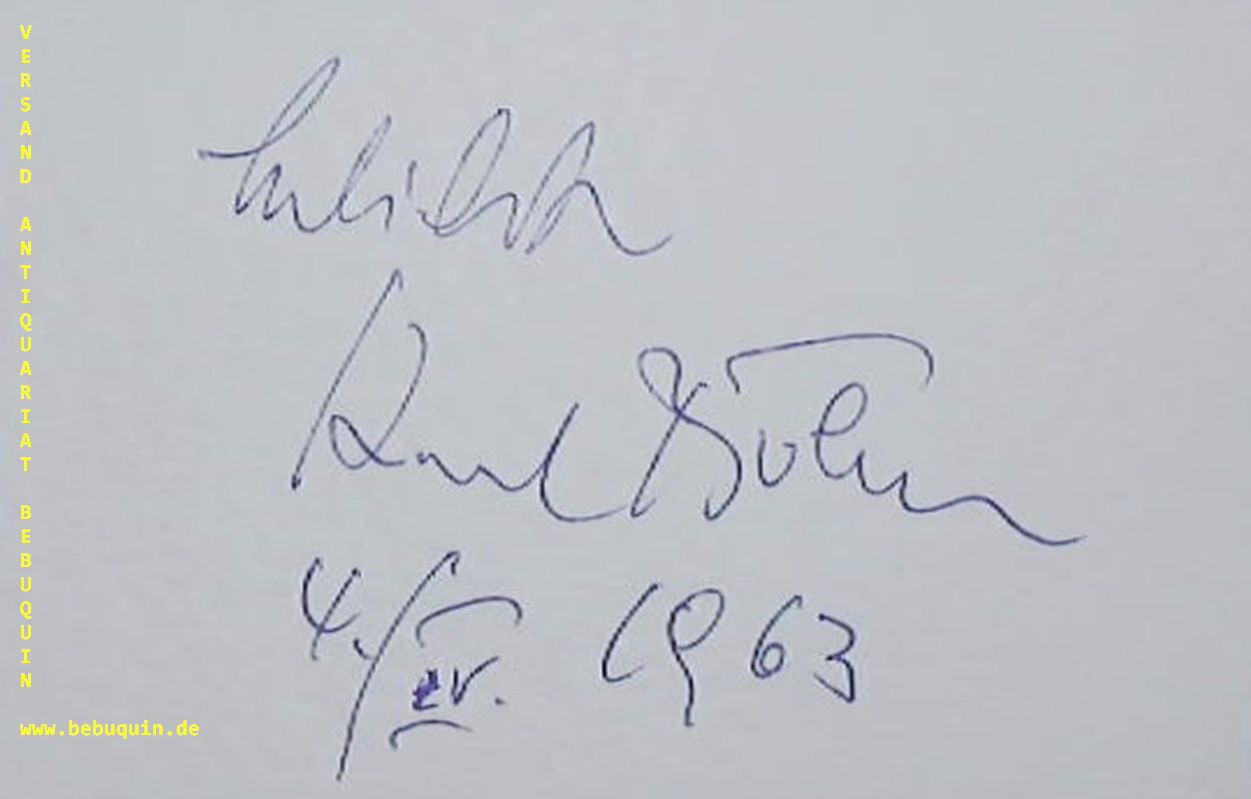 VERSAND ANTIQUARIAT BEBUQUIN
Karl Böhm
4./IV. 1963
www.bebuquin.de